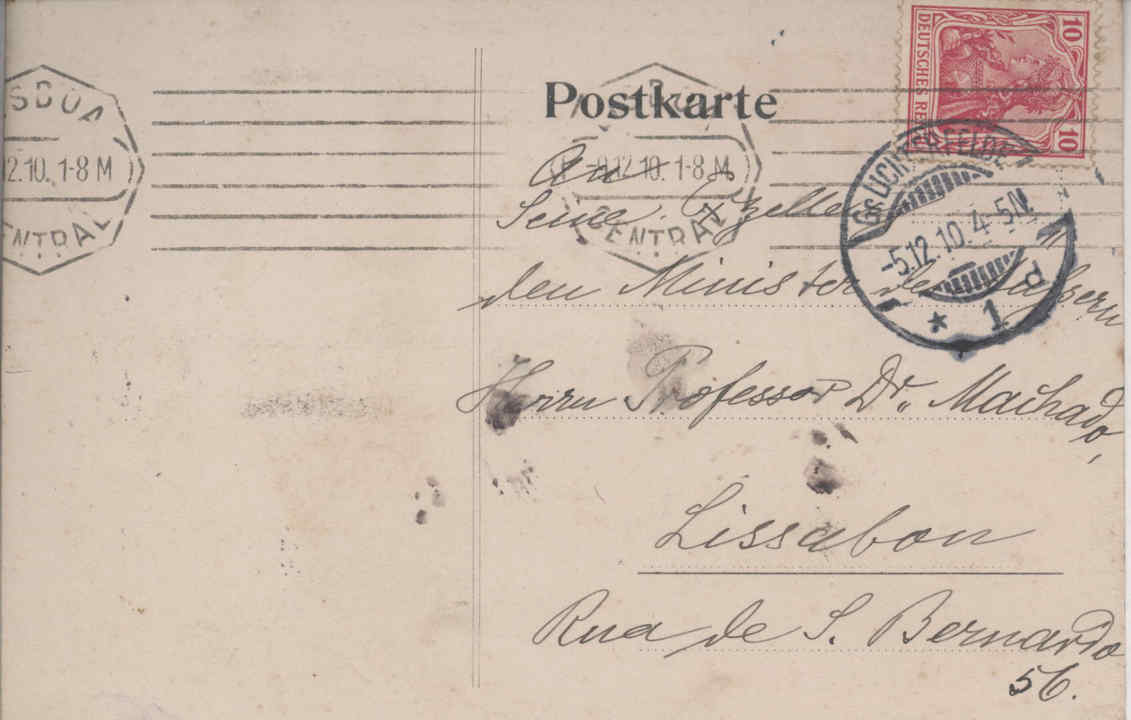 Postkarte
10
DEUTSCHES RE
10
SBOA
12.10. 1-8 M
ENTRAL
-9.12.10. 1-8 M
CENTRAL
GR. LICHTERFELDE
-5.12.10. 4-5N.
* 1 d
An
Seine Exzellenz
den Minister des Äußern
Herrn Professor Dr. Machado,
Lissabon
Rua de S. Bernardo
56.